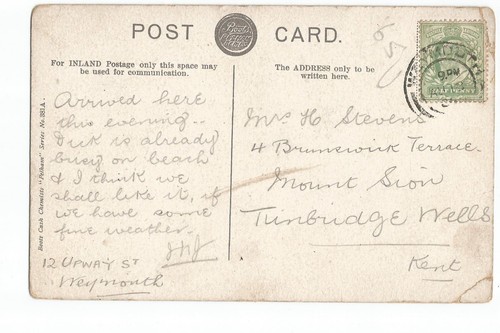 POST CARD.
Boots
For INLAND Postage only this space may
be used for communication.
The ADDRESS only to be
written here.
Arrived here
this evening.
Dick is already
busy on beach
& I think we
shall like it, if
we have some
fine weather.
12 UPWAY ST
Weymouth
Mrs H Stevens
4 Brunswick Terrace.
Mount Sion
Tunbridge Wells
Kent
Boots Cash Chemists "Pelham" Series No. 381A.
HALFPENNY